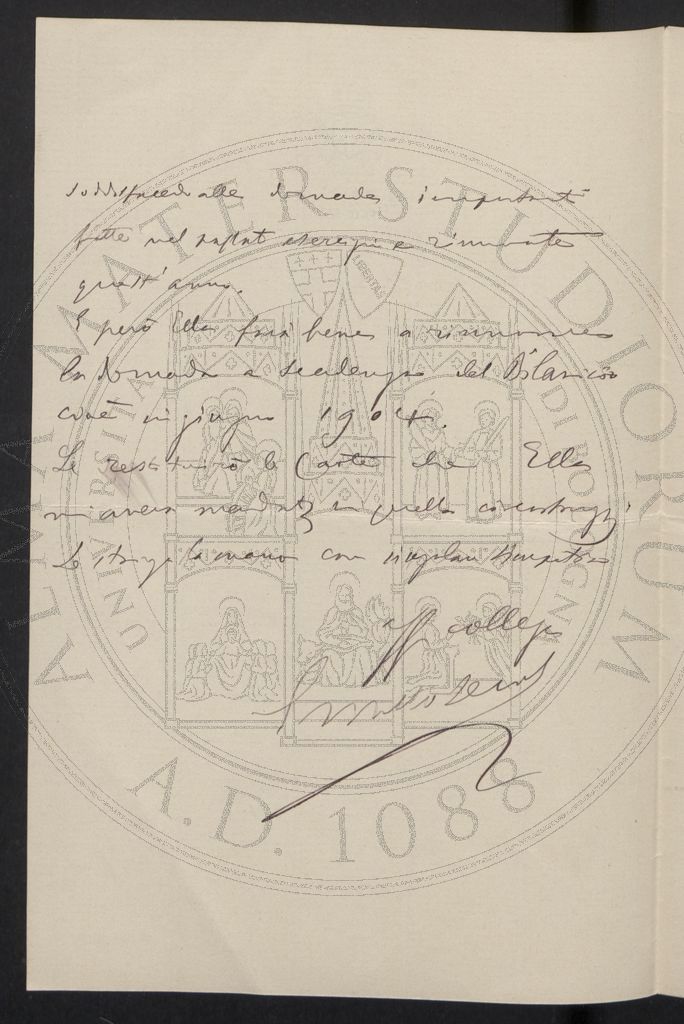 soddisfacendo alle domande importanti
fatte nel esercizio e rinnovate
quest'anno.
E però Ella farà bene a rinnovare
la domanda a scadenza del Bilancio
cioè in giugno 1904.
Le restituirò le Carte che Ella
mi aveva mandate in quella circostanza.
Le stringo la mano con singolare simpatia
collega
ALMA MATER STUDIORUM
UNIVERSITÀ DI BOLOGNA
LIBERTAS
A.D. 1088